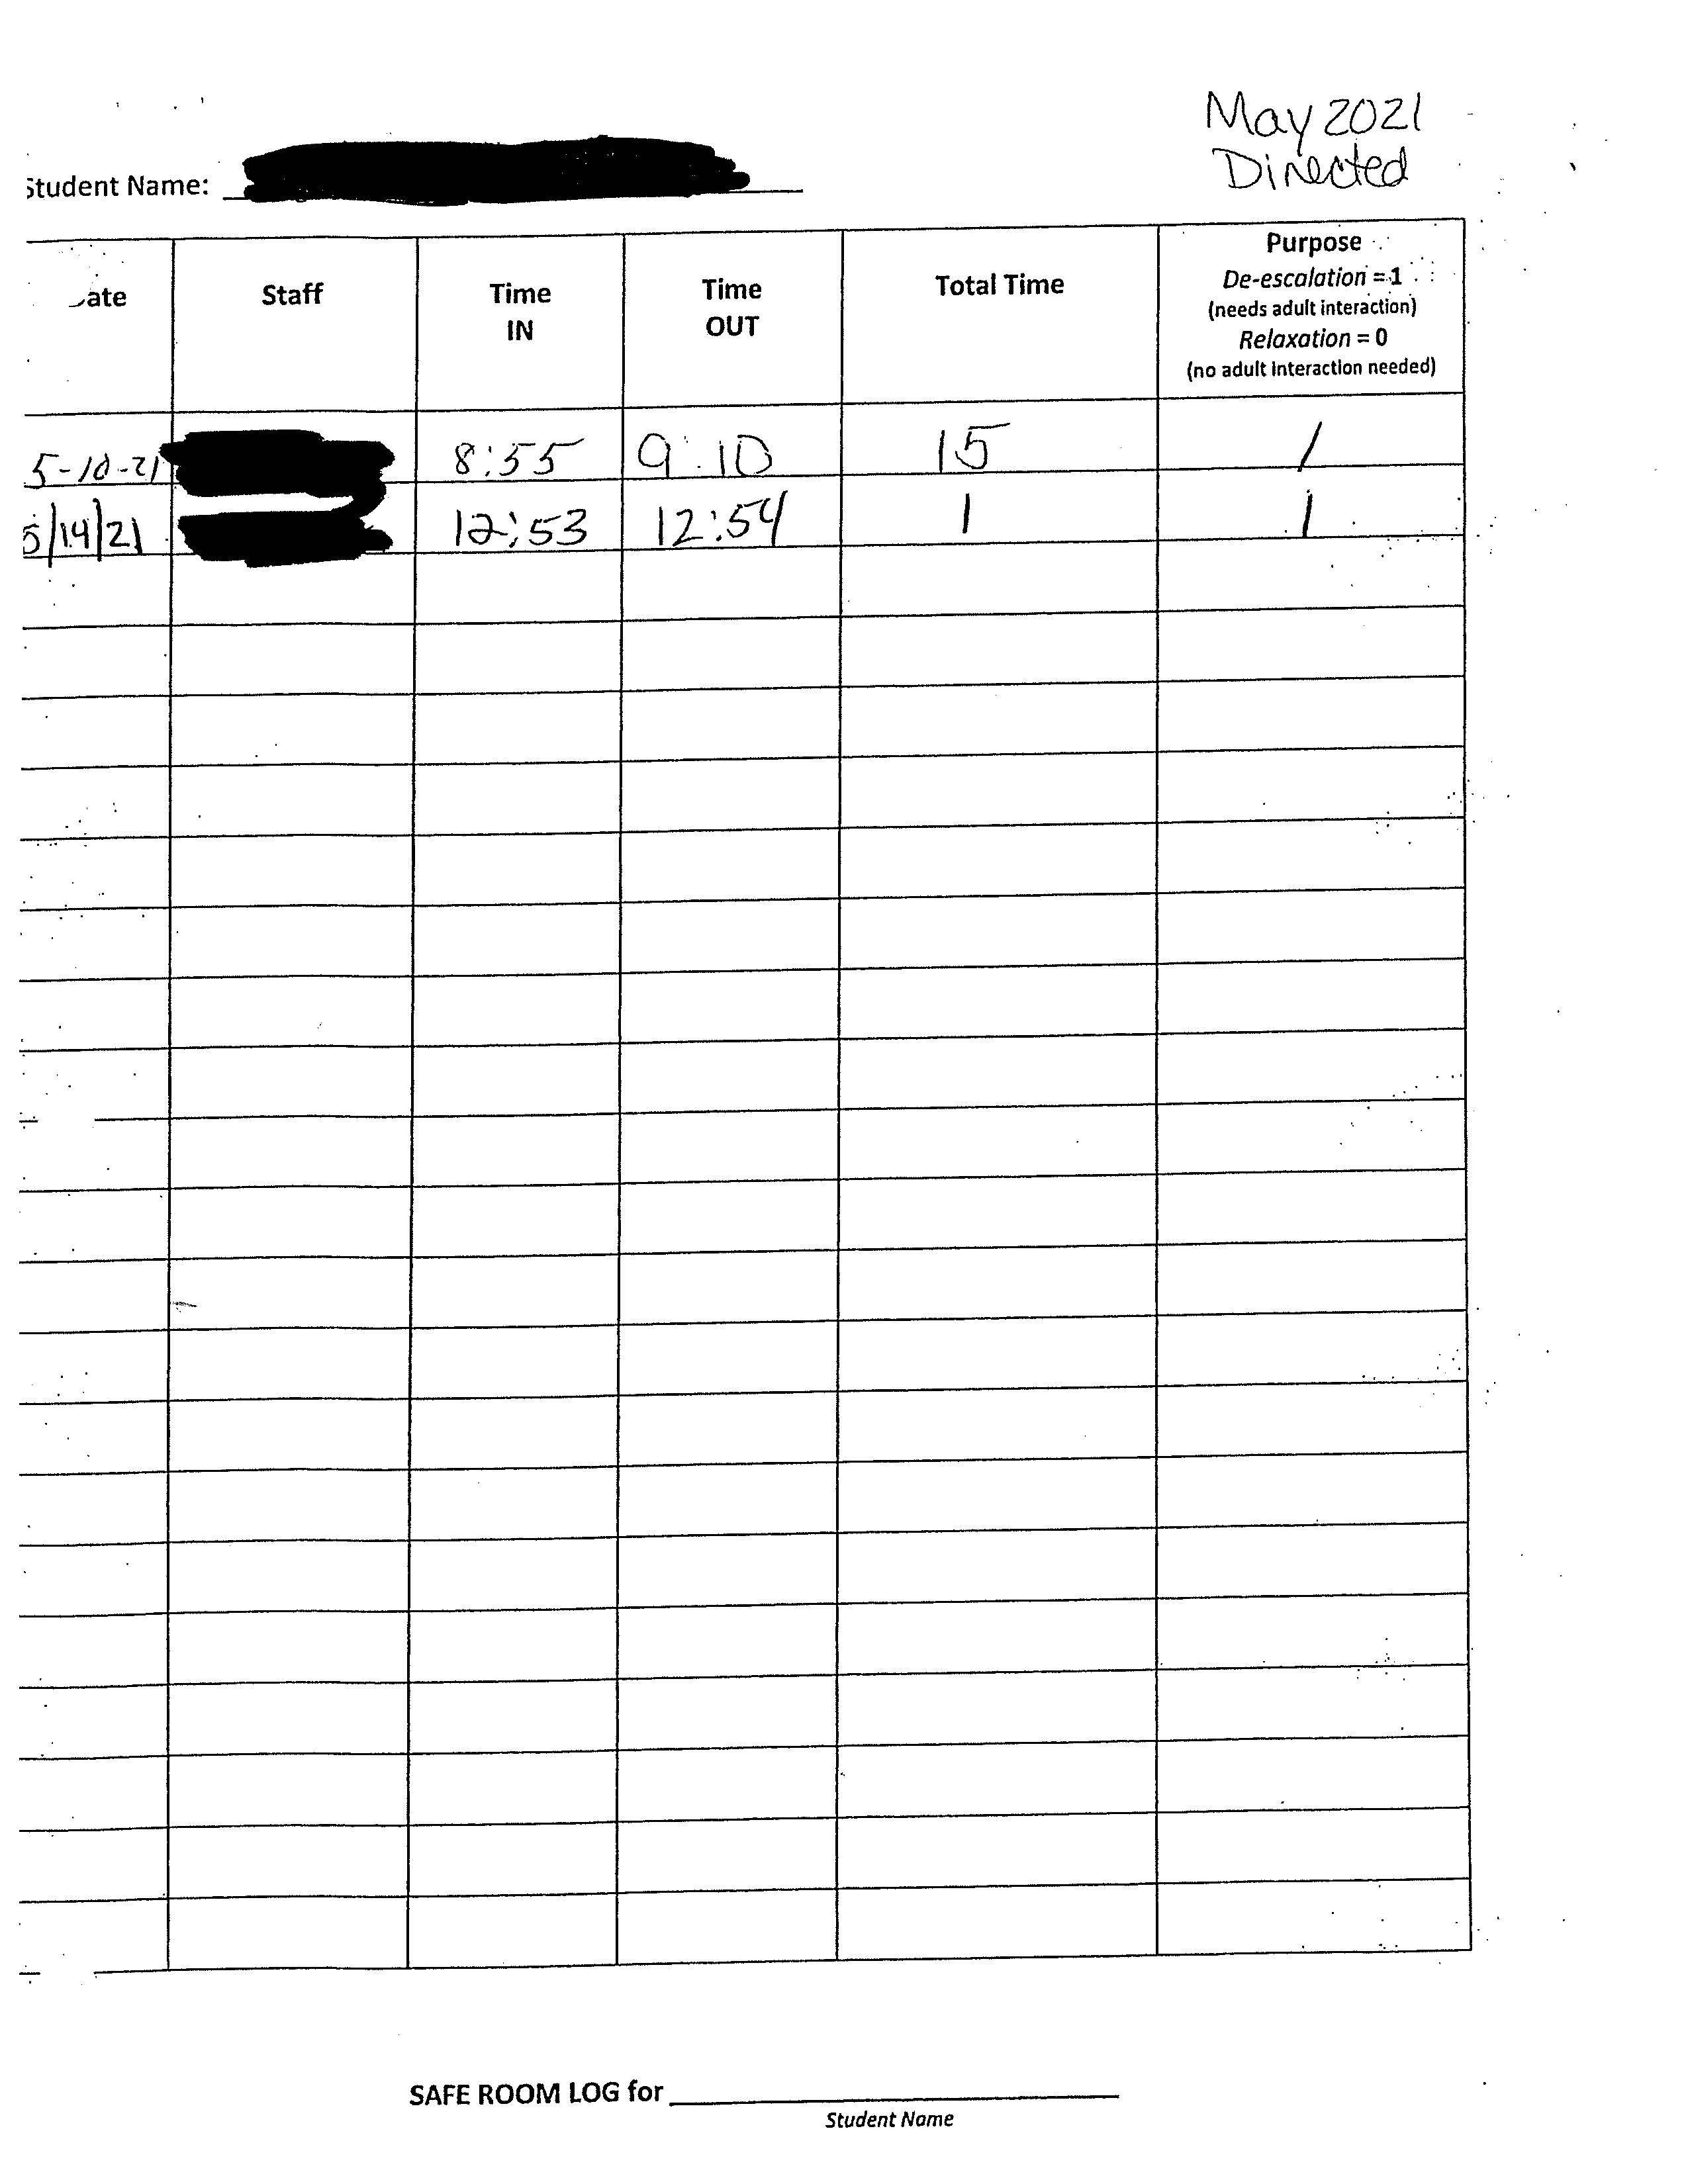 May 2021
Directed
Student Name:
Date Staff Time IN Time OUT Total Time Purpose
De-escalation = 1
(needs adult interaction)
Relaxation = 0
(no adult interaction needed)
5-10-21 8:55 9:10 15 1
5/14/21 12:53 12:54 1 1
SAFE ROOM LOG for
Student Name